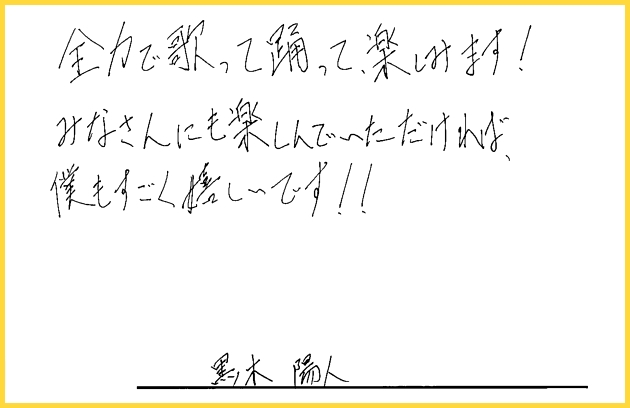 全力で歌って踊って、楽しみます!
みなさんにも楽しんでいただければ、
僕もすごく嬉しいです!!
黒木 陽人